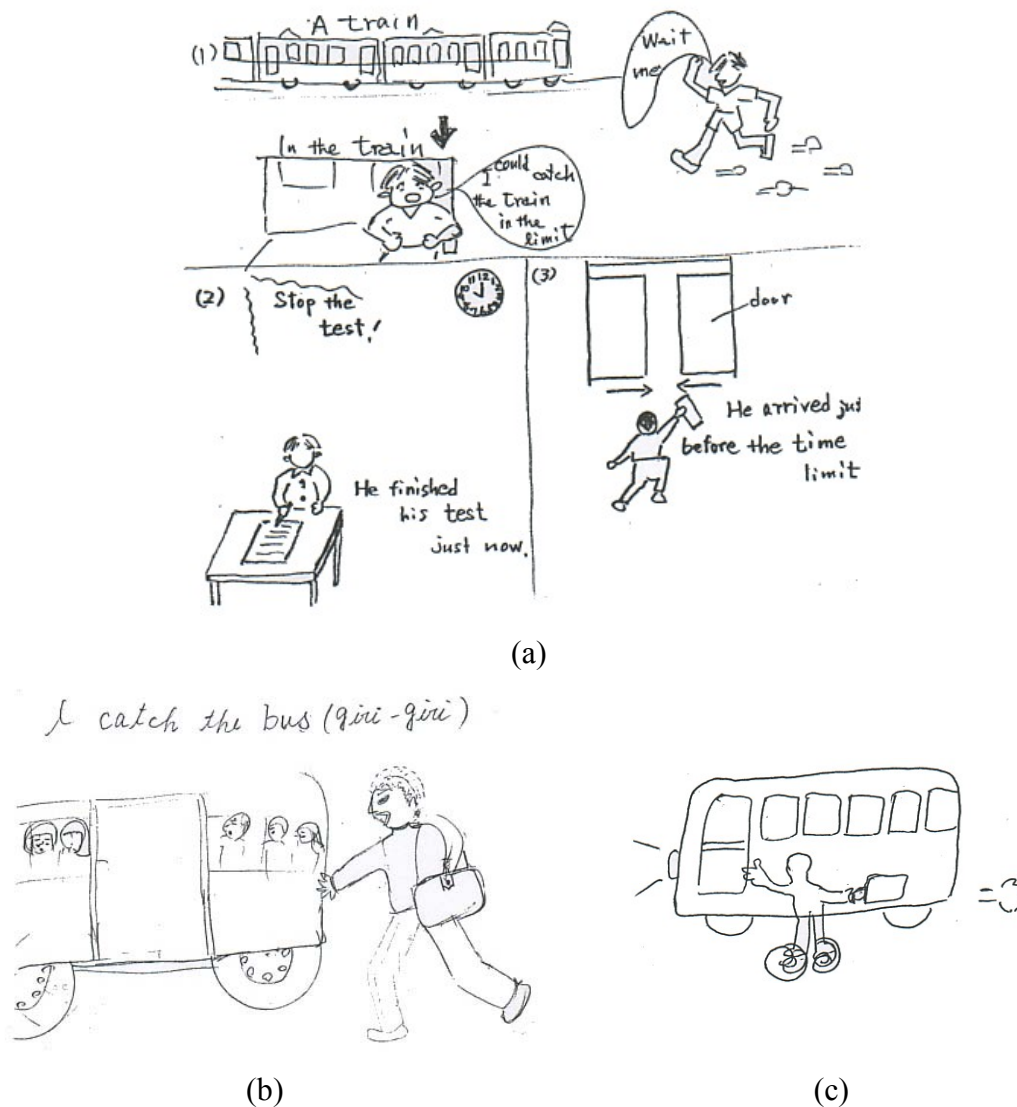 A train
(1)
Wait
me
In the train
I could
catch
the train
in the
limit
(2)
Stop the
test!
He finished
his test
just now.
(3)
door
He arrived jus
before the time
limit
(a)
I catch the bus (giri-giri)
(b)
(c)